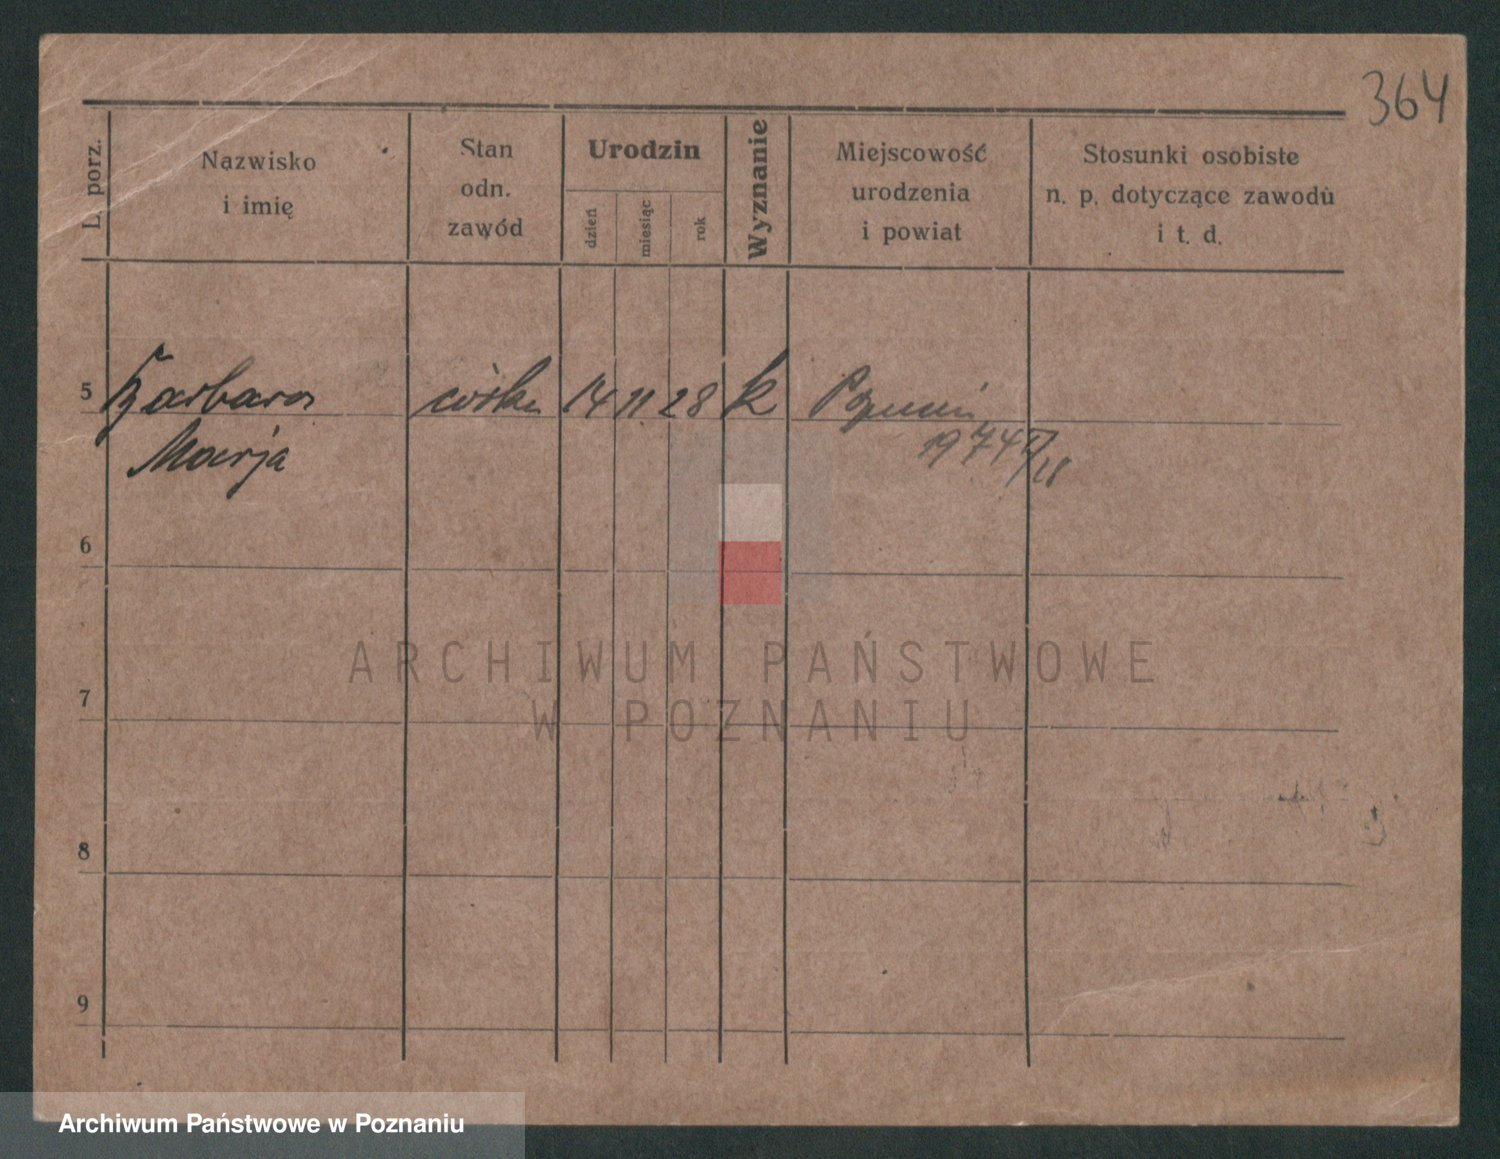 364
L. porz.
Nazwisko
i imię
Stan
odn.
zawód
Urodzin
dzień
miesiąc
rok
Wyznanie
Miejscowość
urodzenia
i powiat
Stosunki osobiste
n. p. dotyczące zawodu
i t. d.
5 Barbara córka 14 11 28 k Poznań
Marja
6
ARCHIWUM PAŃSTWOWE
W POZNANIU
7
8
9
Archiwum Państwowe w Poznaniu